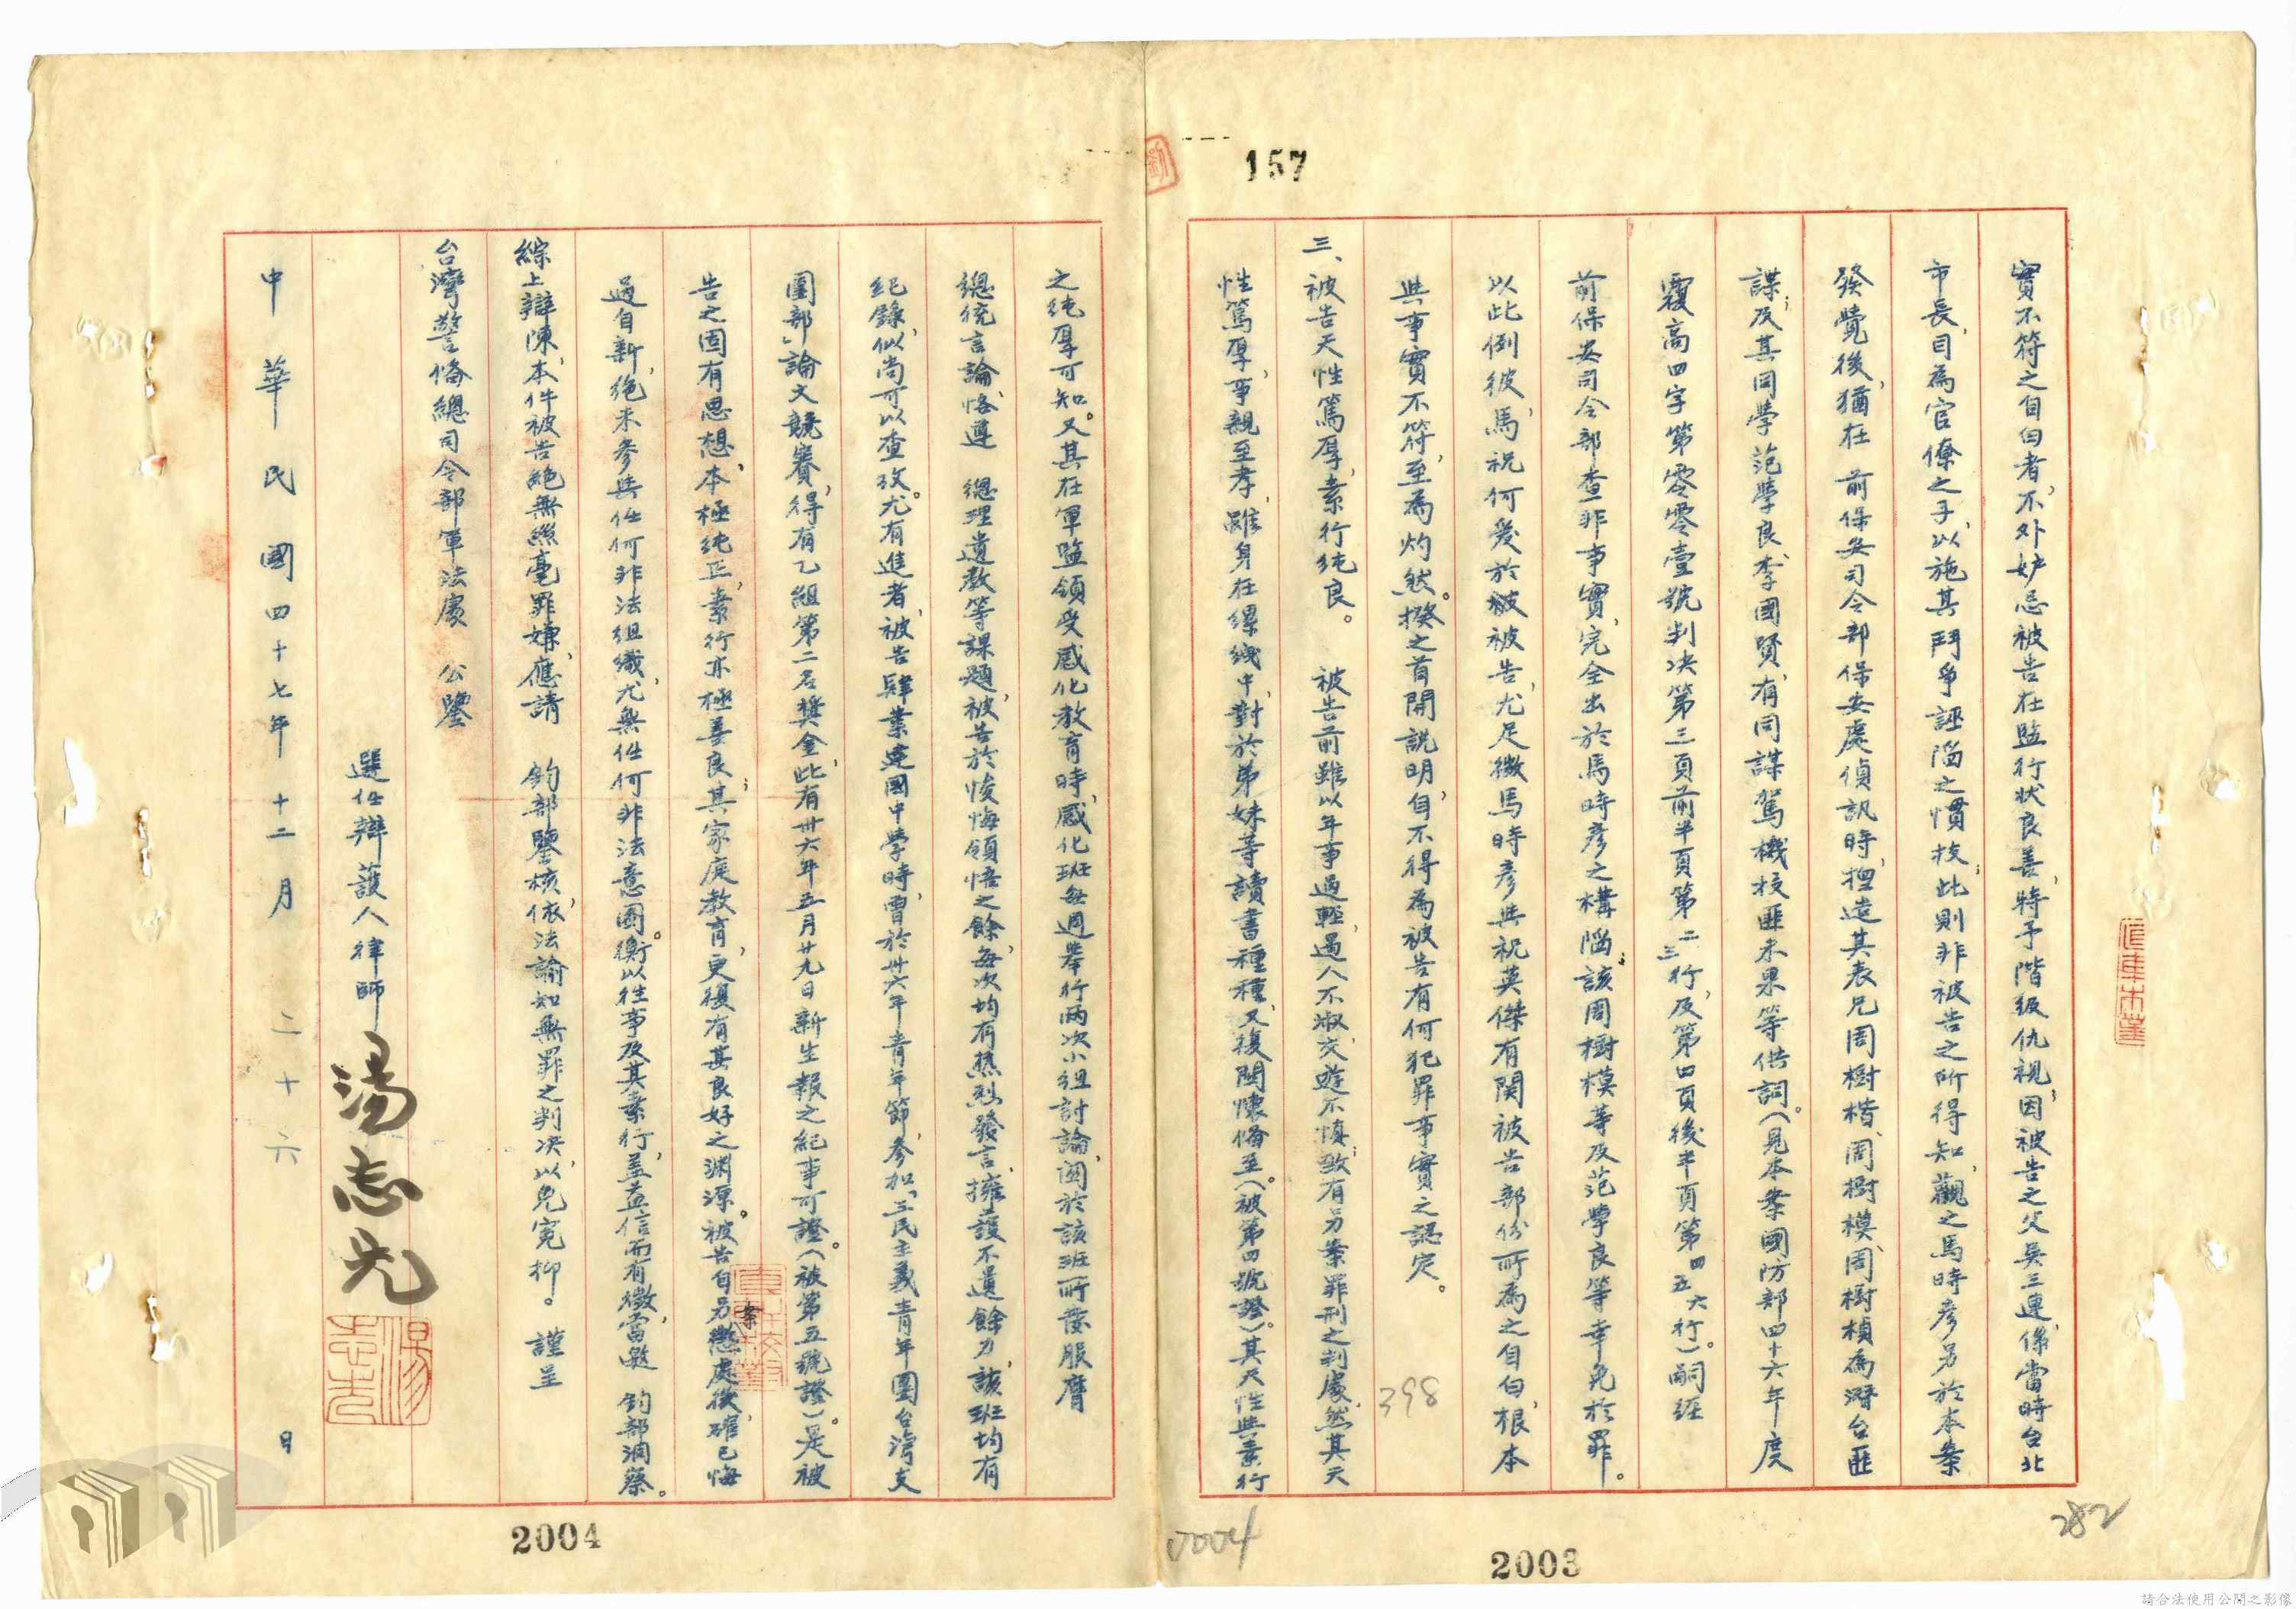 157
實不符之自白者，不外妒忌被告在監行狀良善，特予階級仇視，因被告之父吳三連，係當時台北
市長，目為官僚之子，以施其鬥爭誣陷之慣技，此則非被告之所得知，觀之馬時彥另於本案
發覺後，猶在　前保安司令部保安處偵訊時，捏造其表兄周樹楷、周樹模、周樹楨為潛台匪
諜，及其同學范學良、李國賢，有同謀駕機投匪未果等供詞。（見本案國防部四十六年度
覆高四字第零零壹號判決第三頁前半頁第二三行，及第四頁後半頁第四五六行）。嗣經
前保安司令部查非事實，完全出於馬時彥之構陷，該周樹模等及范學良等幸免於罪。
以此例彼，馬、祝何愛於被告，尤足徵馬時彥與祝英傑有関被告部份所為之自白，根本
與事實不符，至為灼然。揆之首開說明，自不得為被告有何犯罪事實之認定。
三、被告天性篤厚，素行純良。　被告前雖以年事過輕，遇人不淑，交遊不慎，致有另案罪刑之判處，然其天
性篤厚，事親至孝，雖身在縲絏中，對於弟妹等讀書種種，又復関懷備至。（被第四號證）。其天性與素行
398
282
2003
2004
之純厚可知。又其在軍監領受感化教育時，感化班每週舉行兩次小組討論，関於該班所發服膺
總統言論，恪遵　總理遺教等課題，被告於悛悔領悟之餘，每次均有熱烈發言，擁護不遺餘力，該班均有
紀錄，似尚可以查攷。尤有進者，被告肄業建國中學時，曾於卅六年青年節，參加「三民主義青年團台灣支
團部」論文競賽，得有乙組第二名獎金，此有卅六年五月廿九日新生報之紀事可證。（被第五號證）。是被
告之固有思想，本極純正，素行亦極善良，其家庭教育，更復有其良好之淵源。被告自另案懲處後，確已悔
過自新，絕未參與任何非法組織，尤無任何非法意圖。衡以往事及其素行，益信而有徵，當邀　鈞部洞察。
綜上辯陳，本件被告絕無絲毫罪嫌，應請　鈞部鑒核，依法諭知無罪之判決，以免冤抑。謹呈
台灣警備總司令部軍法處　公鑒
選任辯護人律師 湯志光
湯志光
中華民國四十七年十二月二十六日
2004
請合法使用公開之影像